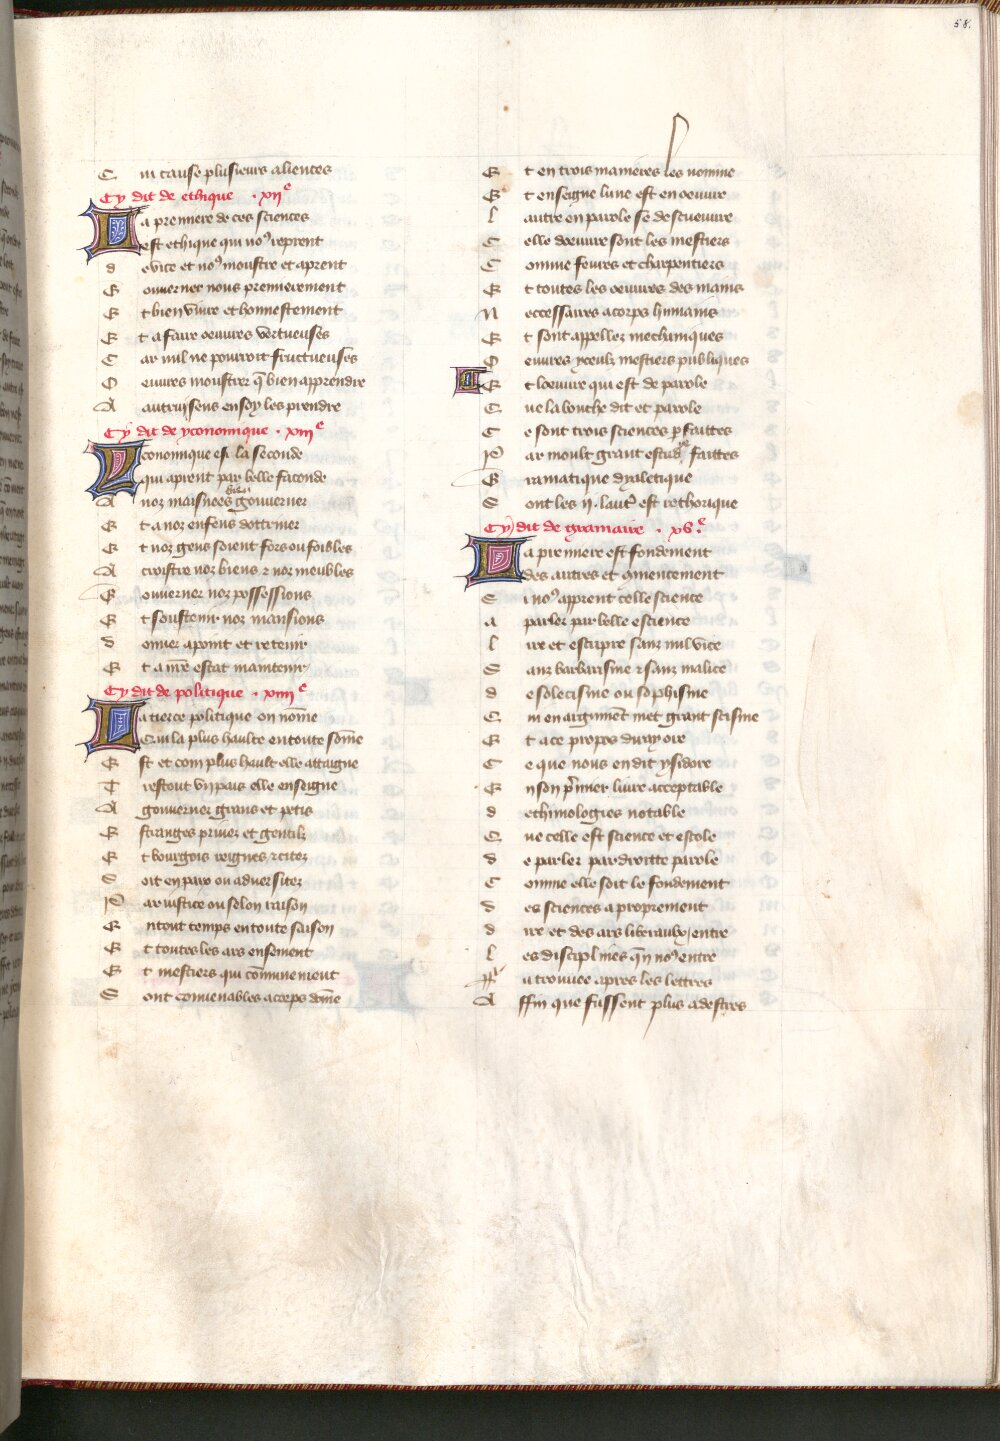 58.
Qui cause plusieurs aliences
Cy dit de ethique . xiie
La premiere de ces sciences
est ethique qui noꝰ reprent
de vice et noꝰ monstre et aprent
Gouuerner nous premierement
Et bien viure et honnestement
Et a faire oeuures vertueuses
Car nul ne pourroit fructueuses
Oeuures monstrer q̃ bien apprendre
A autruy sens en soy les prendre
Cy dit de yconomique . xiiie
Yconomique est la seconde
qui aprent par belle faconde
A noz maisnees bien gouuerner
Et a noz enfens dottriner
Et noz gens soient fors ou foibles
A croistre noz biens ⁊ noz meubles
Gouuerner noz possessions
Et soustenir noz mansions
donner apoint et retenir
Et a mr̃e estat maintenir
Cy dit de politique . xiiiie
La tierce politique on nõme
Qui la plus haulte en toute sõme
Est et com plus hault elle attaigne
Trestout vn pais elle enseigne
A gouuerner grans et petis
Estranges priuez et gentilz
Et bourgois reignes ⁊ citez
Soit en paix ou aduersitez
Par iustice ou selon raison
En tout temps en toute saison
Et toutes les ars ensement
Et mestiers qui cõmunement
Sont conuenables a corps dõme
Et en trois manieres les nomme
Et enseigne lune est en oeuure
lautre en parole se descueuure
Celle doeuure sont les mestiers
Comme feures et charpentiers
Et toutes les oeuures des mains
Neccessaires a corps humains
Et sont appellez mechaniques
Oeuures yceulx mestiers publiques
Et loeuure qui est de parole
Que la bouche dit et parole
Ce sont trois sciences ꝑfaittes
Par moult grant estudie faittes
Gramatique dyaletique
Sont les ii. laut̾ est rethorique
Cy dit de gramaire . xve.
La premiere est fondement
des autres et cõmencement
Si noꝰ apprent celle science
a parler par belle escience
lire et escripre sanz nul vice
Sanz barbarisme ⁊ sanz malice
de solecisme ou sophisme
Qui en argumẽt met grant scisme
Et a ce propos diray ore
Ce que nous en dit ysidore
En son p̃mier liure acceptable
dethimologies notable
Que celle est science et escole
de parler par droitte parole
Comme elle soit le fondement
des sciences a proprement
dire et des ars liberaulx entre
les disciplines qñ noꝰ entre
Fu trouuee apres les lettres
Affin que fussent plus adestres